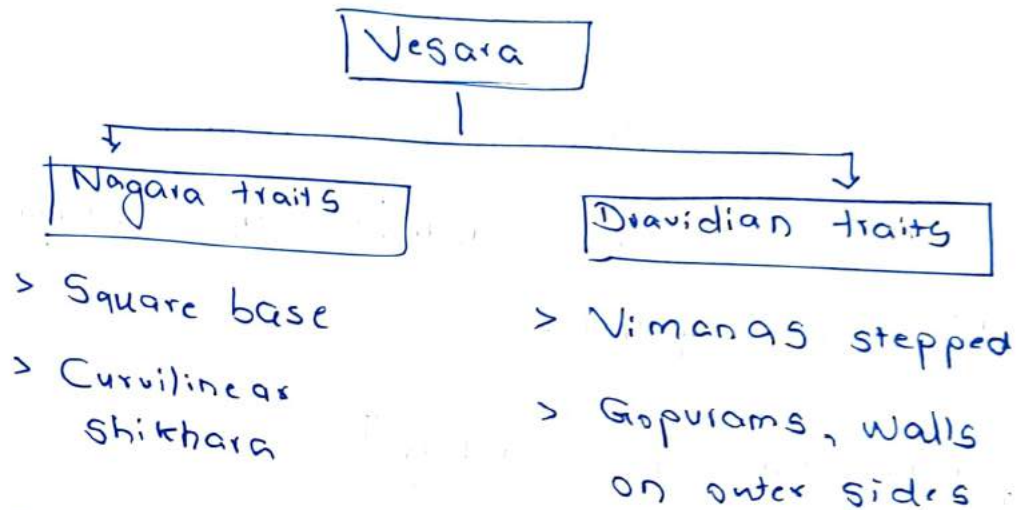 Vesara
Nagara traits
> Square base
> Curvilinear
shikhara
Dravidian traits
> Vimanas stepped
> Gopurams, walls
on outer sides